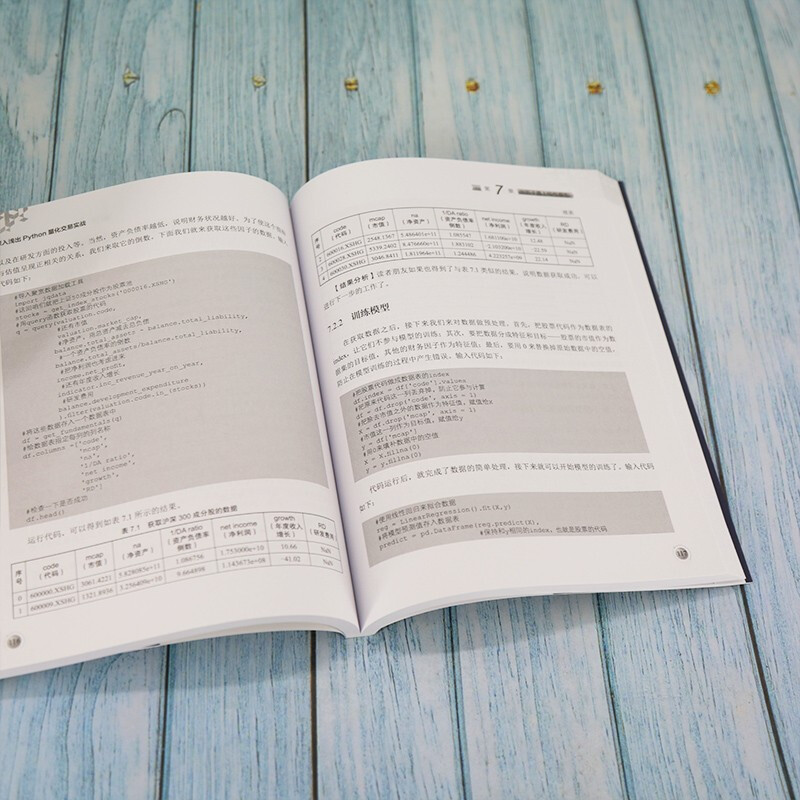 深入浅出 Python 量化交易实战
以及在研发方面的投入等。当然，资产负债率越低，说明财务状况越好。为了使这个指标
与估值呈现正相关的关系，我们采取它的倒数。下面我们就来获取这些因子的数据，输入
代码如下：
#导入聚宽数据加载工具
import jqdata
#这咱咱们就把上证50成分股作为股票池
stocks = get_index_stocks('000016.XSHG')
#用query函数获取股票的代码
q = query(valuation.code,
#还有市值
valuation.market_cap,
#净资产，用总资产减去总负债
balance.total_assets - balance.total_liability,
#一个资产负债率的倒数
balance.total_assets/balance.total_liability,
#把净利润也考虑进来
income.net_profit,
#还有年度收入增长
indicator.inc_revenue_year_on_year,
#研发费用
balance.development_expenditure
).filter(valuation.code.in_(stocks))
#将这些数据存入一个数据表中
df = get_fundamentals(q)
#给数据表指定每列的列名称
df.columns =['code',
'mcap',
'na',
'1/DA ratio',
'net income',
'growth',
'RD']
#检查一下是否成功
df.head()
运行代码，可以得到如表 7.1 所示的结果。
表 7.1 获取沪深 300 成分股的数据
序号 code（代码） mcap（市值） na（净资产） 1/DA ratio（资产负债率倒数） net income（净利润） growth（年度收入增长） RD（研发费用）
0 600000.XSHG 3061.4221 5.828085e+11 1.086756 1.753000e+10 10.66 NaN
1 600009.XSHG 1321.8936 3.256409e+10 9.664998 1.143673e+08 -41.02 NaN
第 7 章
续表
序号 code（代码） mcap（市值） na（净资产） 1/DA ratio（资产负债率倒数） net income（净利润） growth（年度收入增长） RD（研发费用）
2 600016.XSHG 2548.1367 NaN
3 600028.XSHG 5339.2402 NaN
4 600030.XSHG 3046.8411 22.14 NaN
【结果分析】读者朋友如果也得到了与表7.1类似的结果，说明数据获取成功，可以
进行下一步的工作了。
7.2.2 训练模型
在获取数据之后，接下来我们来对数据做预处理。首先，把股票代码作为数据表的
index，让它们不参与模型的训练；其次，要把数据分成特征和目标——股票的市值作为数
据集的目标值，其他的财务因子作为特征值；最后，要用 0 来替换掉原始数据中的空值，
防止在模型训练的过程中产生错误。输入代码如下：
#把股票代码做成数据表的index
df.index = df['code'].values
#把原来代码这一列丢弃掉，防止它参与计算
df = df.drop('code', axis = 1)
#把除去市值之外的数据作为特征值，赋值给X
X = df.drop('mcap', axis = 1)
#市值这一列作为目标值，赋值给y
y = df['mcap']
#用0来填补数据中的空值
X = X.fillna(0)
y = y.fillna(0)
代码运行后，就完成了数据的简单处理，接下来就可以开始模型的训练了。输入代码
如下：
#使用线性回归来拟合数据
reg = LinearRegression().fit(X,y)
#将模型预测值存入数据表
predict = pd.DataFrame(reg.predict(X),
#保持和y相同的index，也就是股票的代码